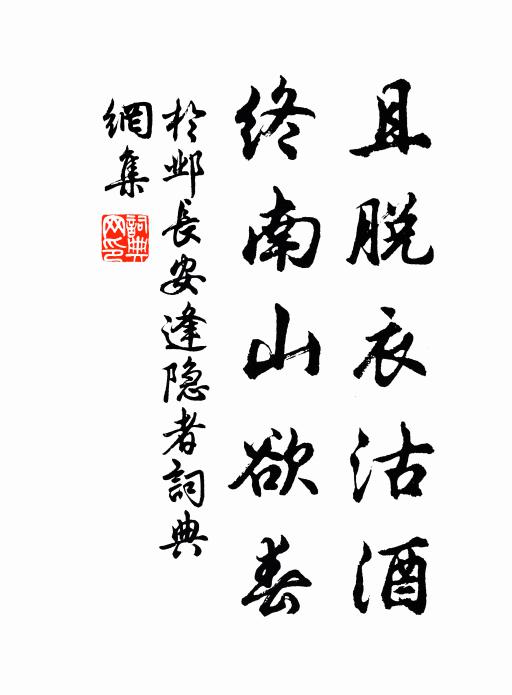 且脱衣沽酒
终南山欲春
於邺长安逢隐者詞典
網集
詞典网印